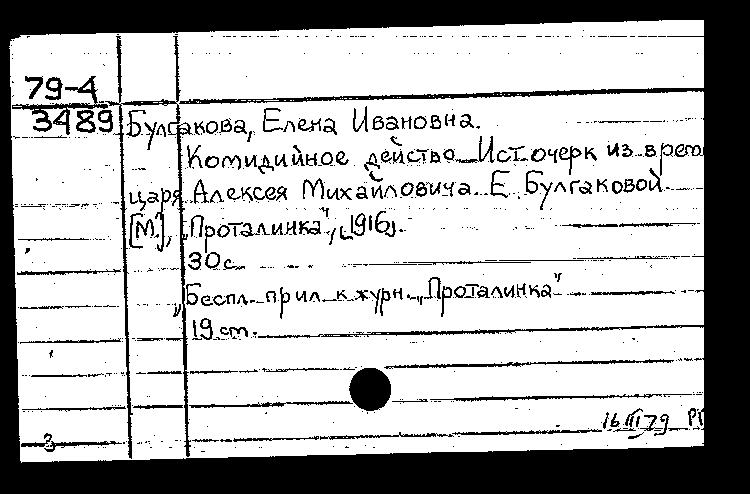 79-4
3489 Булгакова, Елена Ивановна.
Комидийное действо. Ист. очерк из врем
царя Алексея Михайловича. Е. Булгаковой.
[М.], "Проталинка", [1916].
30 с.
"Беспл. прил. к журн. "Проталинка"
19 ст.
16 III 79 РГ
3